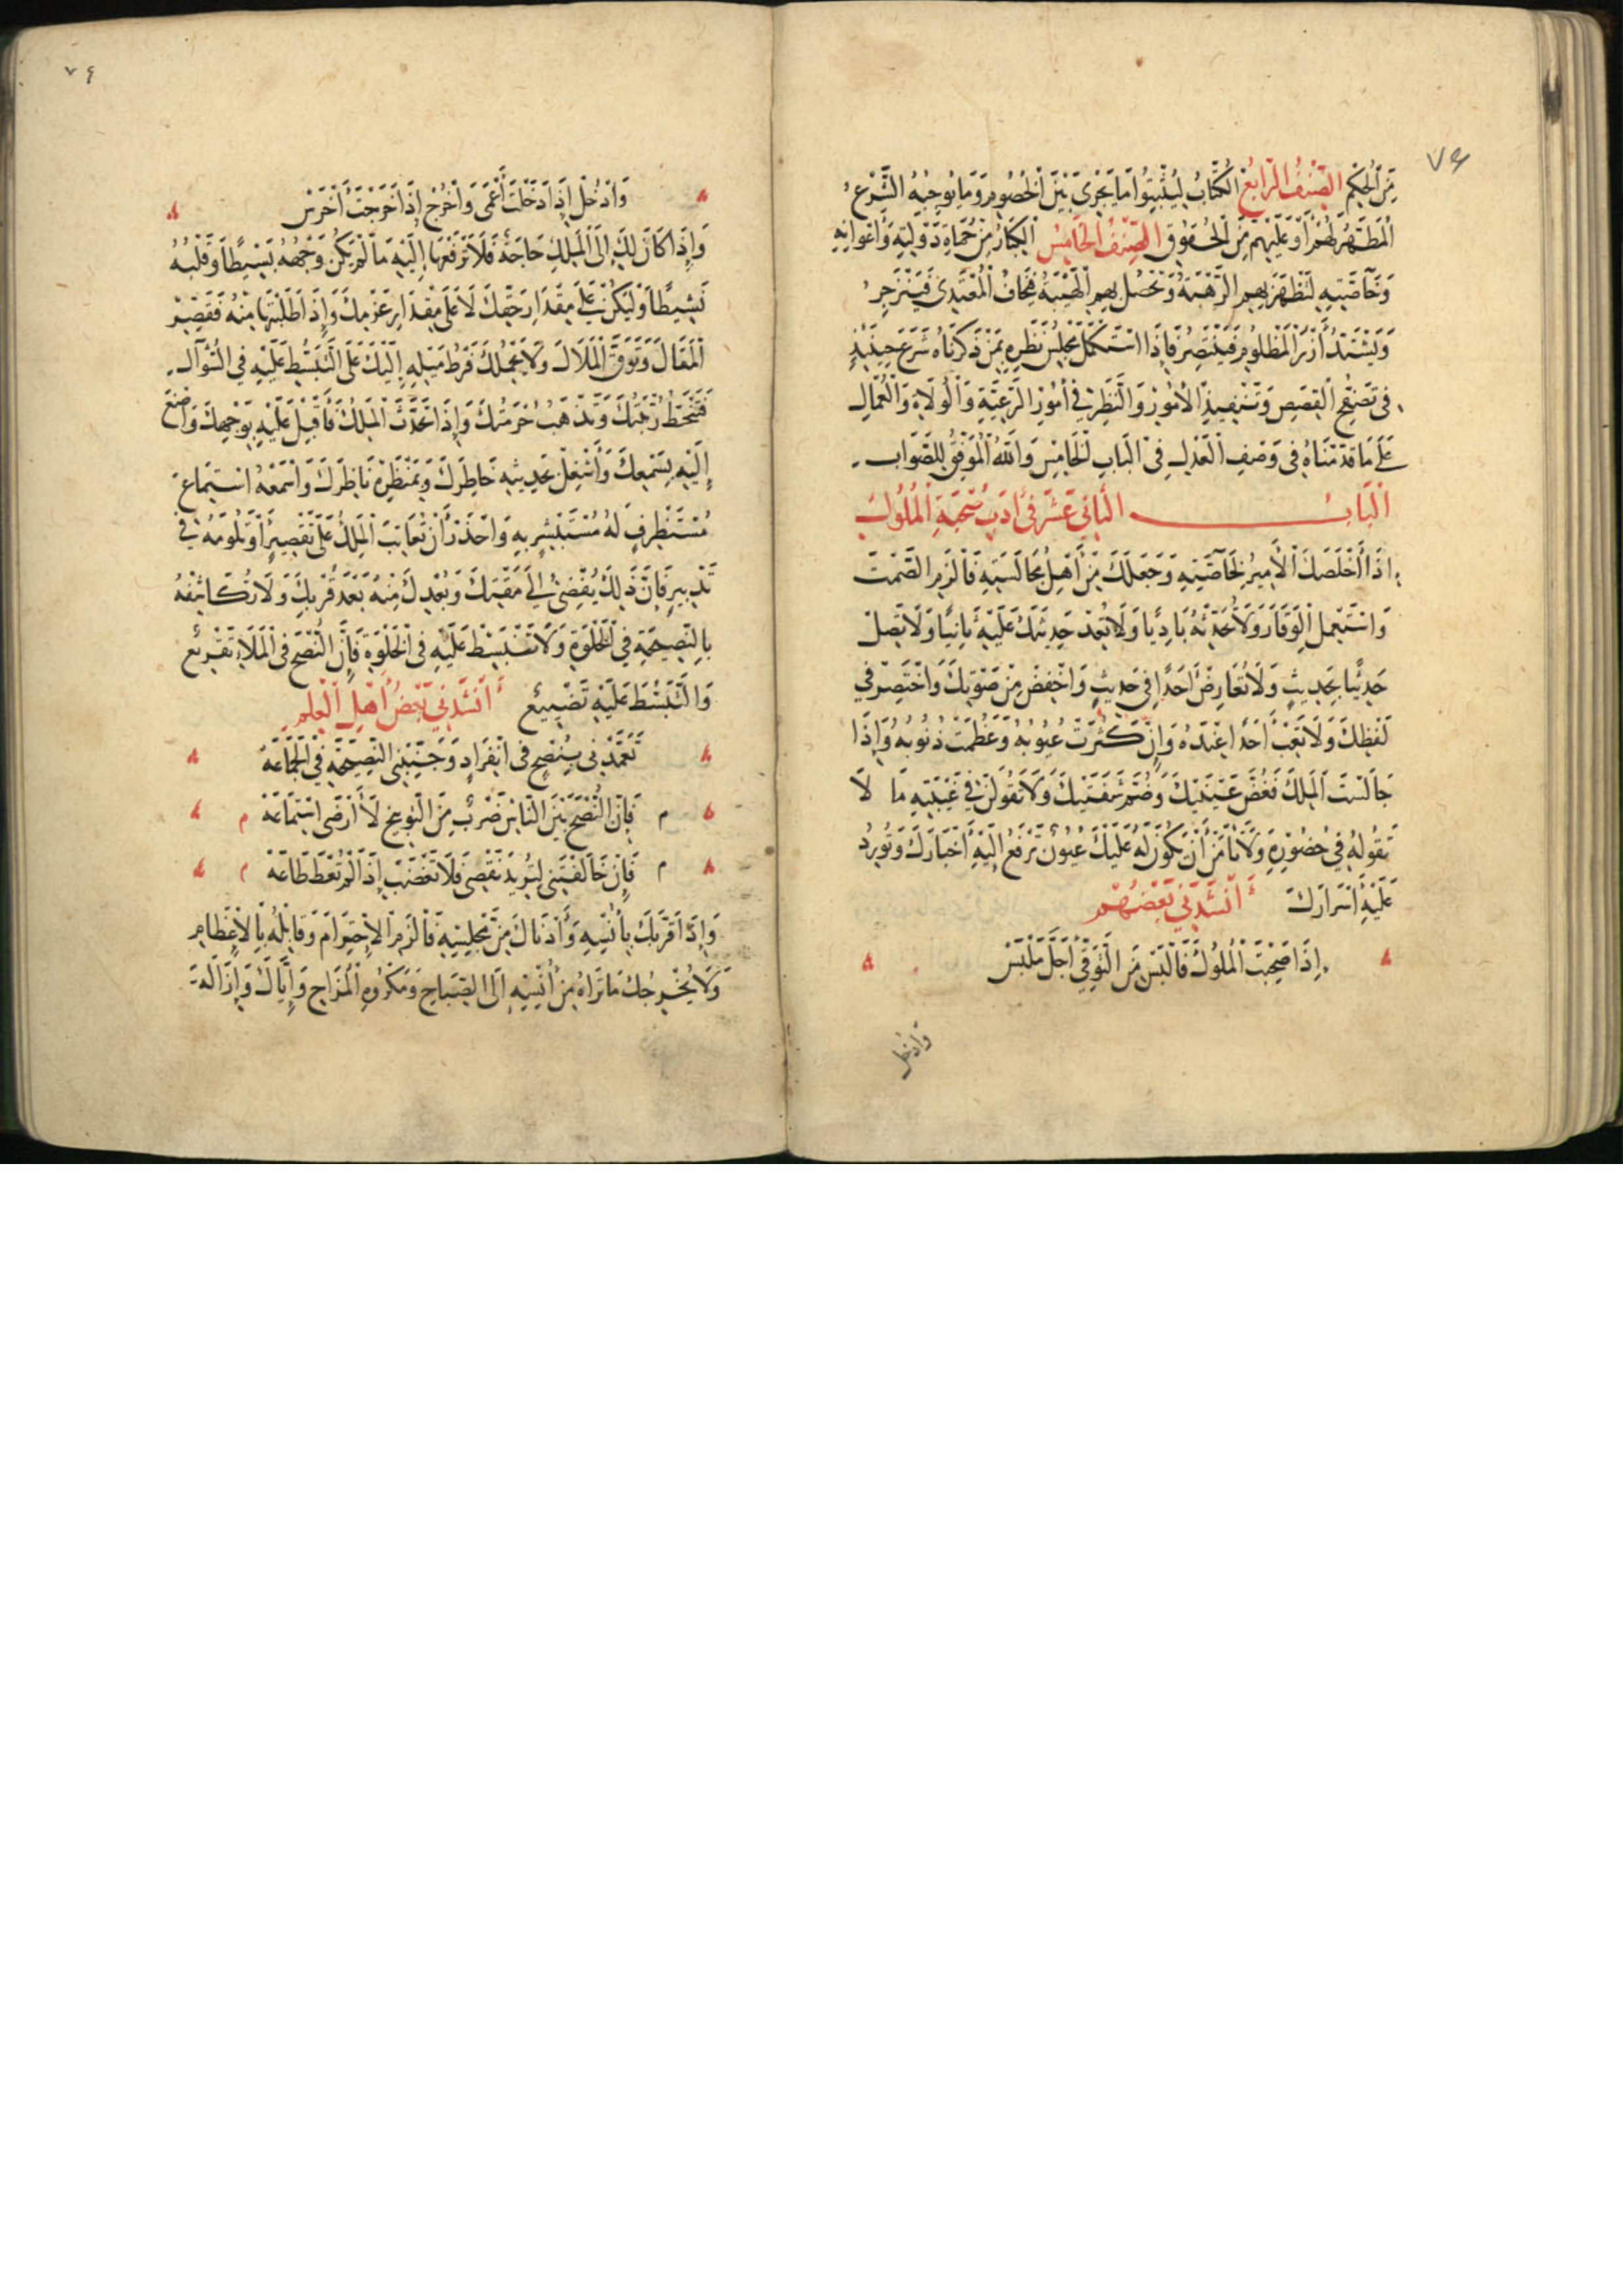 ٧٤
مِنَ الْحِكَمِ الصِّنْفُ الرَّابِعُ الْكُتَّابُ لِيُثْبِتُوا مَا يَجْرِي بَيْنَ الْخُصُومِ وَمَا يُوجِبُهُ الشَّرْعُ
الْمُطَهَّرُ لَهُمْ أَوْ عَلَيْهِمْ مِنَ الْحُقُوقِ الصِّنْفُ الْخَامِسُ الْكِبَارُ مِنْ حُمَاةِ دَوْلَتِهِ وَأَعْوَانِهِ
وَخَاصَّتِهِ لِتَظْهَرَ بِهِمِ الرَّهْبَةُ وَتَحْصُلَ بِهِمِ الْهَيْبَةُ فَيَخَافُ الْمُعْتَدِي فَيَنْزَجِرُ
وَيَشْتَدُّ أَزْرُ الْمَظْلُومِ فَيَنْتَصِرُ فَإِذَا اسْتَكْمَلَ مَجْلِسُ نَظَرِهِ بِمَنْ ذَكَرْنَاهُ شَرَعَ حِينَئِذٍ
فِي تَصَفُّحِ الْقِصَصِ وَتَنْفِيذِ الْأُمُورِ وَالنَّظَرِ فِي أُمُورِ الرَّعِيَّةِ وَالْوُلَاةِ وَالْعُمَّالِ
عَلَى مَا قَدَّمْنَاهُ فِي وَصْفِ الْعَدْلِ فِي الْبَابِ الْخَامِسِ وَاللَّهُ الْمُوَفِّقُ لِلصَّوَابِ
الْبَابُ الثَّانِي عَشَرَ فِي أَدَبِ صُحْبَةِ الْمُلُوكِ
إِذَا أَخْلَصَكَ الْأَمِيرُ لِخَاصَّتِهِ وَجَعَلَكَ مِنْ أَهْلِ مُجَالَسَتِهِ فَالْزَمِ الصَّمْتَ
وَاسْتَعْمِلِ الْوَقَارَ وَلَا تُحَدِّثْهُ بَادِيًا وَلَا تُعِدْ حَدِيثَكَ عَلَيْهِ ثَانِيًا وَلَا تَصِلْ
حَدِيثًا بِحَدِيثٍ وَلَا تُعَارِضْ أَحَدًا فِي حَدِيثٍ وَاخْفِضْ مِنْ صَوْتِكَ وَاخْتَصِرْ فِي
لَفْظِكَ وَلَا تَعِبْ أَحَدًا عِنْدَهُ وَإِنْ كَثُرَتْ عُيُوبُهُ وَعَظُمَتْ ذُنُوبُهُ وَإِذَا
جَالَسْتَ الْمَلِكَ فَغُضَّ عَيْنَيْكَ وَضُمَّ شَفَتَيْكَ وَلَا تَقُولَنَّ فِي غَيْبَتِهِ مَا لَا
تَقُولُهُ فِي حُضُورِهِ وَلَا تَأْمَنْ أَنْ يَكُونَ لَهُ عَلَيْكَ عُيُونٌ تَرْفَعُ إِلَيْهِ أَخْبَارَكَ وَتُورِدُ
عَلَيْهِ أَسْرَارَكَ أَنْشَدَنِي بَعْضُهُمْ
إِذَا صَحِبْتَ الْمُلُوكَ فَالْبَسْ مِنَ التَّوَقِّي أَجَلَّ مَلْبَسْ
وَادْخُل
٧٤
وَادْخُلْ إِذَا دَخَلْتَ أَعْمَى وَاخْرُجْ إِذَا خَرَجْتَ أَخْرَسْ
وَإِذَا كَانَ لَكَ إِلَى الْمَلِكِ حَاجَةٌ فَلَا تَرْفَعْهَا إِلَيْهِ مَا لَمْ يَكُنْ وَجْهُهُ بَسِيطًا وَقَلْبُهُ
نَشِيطًا وَلْيَكُنْ عَلَى مِقْدَارِ حَقِّكَ لَا عَلَى مِقْدَارِ عَزْمِكَ وَإِذَا طَلَبْتَهَا مِنْهُ فَقَصِّرْ
الْمَقَالَ وَتَوَقَّ الْمَلَالَ وَلَا يَحْمِلْكَ فَرْطُ مَيْلِهِ إِلَيْكَ عَلَى التَّبَسُّطِ عَلَيْهِ فِي السُّؤَالِ
فَتَنْحَطَّ رُتْبَتُكَ وَتَذْهَبَ حُرْمَتُكَ وَإِذَا تَحَدَّثَ الْمَلِكُ فَأَقْبِلْ عَلَيْهِ بِوَجْهِكَ وَاصْغَ
إِلَيْهِ بِسَمْعِكَ وَأَشْغِلْ بِحَدِيثِهِ خَاطِرَكَ وَبِمَنْظَرِهِ نَاظِرَكَ وَاسْمَعْهُ اسْتِمَاعَ
مُسْتَظْرِفٍ لَهُ مُسْتَبْشِرٍ بِهِ وَاحْذَرْ أَنْ تُعَاتِبَ الْمَلِكَ عَلَى تَقْصِيرٍ أَوْ تَلُومَهُ فِي
تَدْبِيرٍ فَإِنَّ ذَلِكَ يُفْضِي إِلَى مَقْتِكَ وَبُعْدِكَ مِنْهُ بَعْدَ قُرْبِكَ وَلَا تُكَاشِفْهُ
بِالنَّصِيحَةِ فِي الْخَلْوَةِ وَلَا تَنْبَسِطْ عَلَيْهِ فِي الْخَلْوَةِ فَإِنَّ النُّصْحَ فِي الْمَلَإِ تَقْرِيعٌ
وَالتَّبَسُّطَ عَلَيْهِ تَضْيِيعٌ أَنْشَدَنِي بَعْضُ أَهْلِ الْعِلْمِ
تَعَمَّدْنِي بِنُصْحٍ فِي انْفِرَادٍ وَجَنِّبْنِي النَّصِيحَةَ فِي الْجَمَاعَهْ
م فَإِنَّ النُّصْحَ بَيْنَ النَّاسِ ضَرْبٌ مِنَ التَّوْبِيخِ لَا أَرْضَى اسْتِمَاعَهْ م
م فَإِنْ خَالَفْتَنِي لِتُرِيدَ نَقْصِي فَلَا تَغْضَبْ إِذَا لَمْ تُعْطَ طَاعَهْ م
وَإِذَا قَرَّبَكَ بِأُنْسِهِ وَأَدْنَاكَ مِنْ مَجْلِسِهِ فَالْزَمِ الِاحْتِرَامَ وَقَابِلْهُ بِالْإِعْظَامِ
وَلَا يُخْرِجُكَ مَا تَرَاهُ مِنْ أُنْسِهِ إِلَى الصِّيَاحِ وَمَكْرُوهِ الْمُزَاحِ وَإِيَّاكَ وَإِذَالَهُ